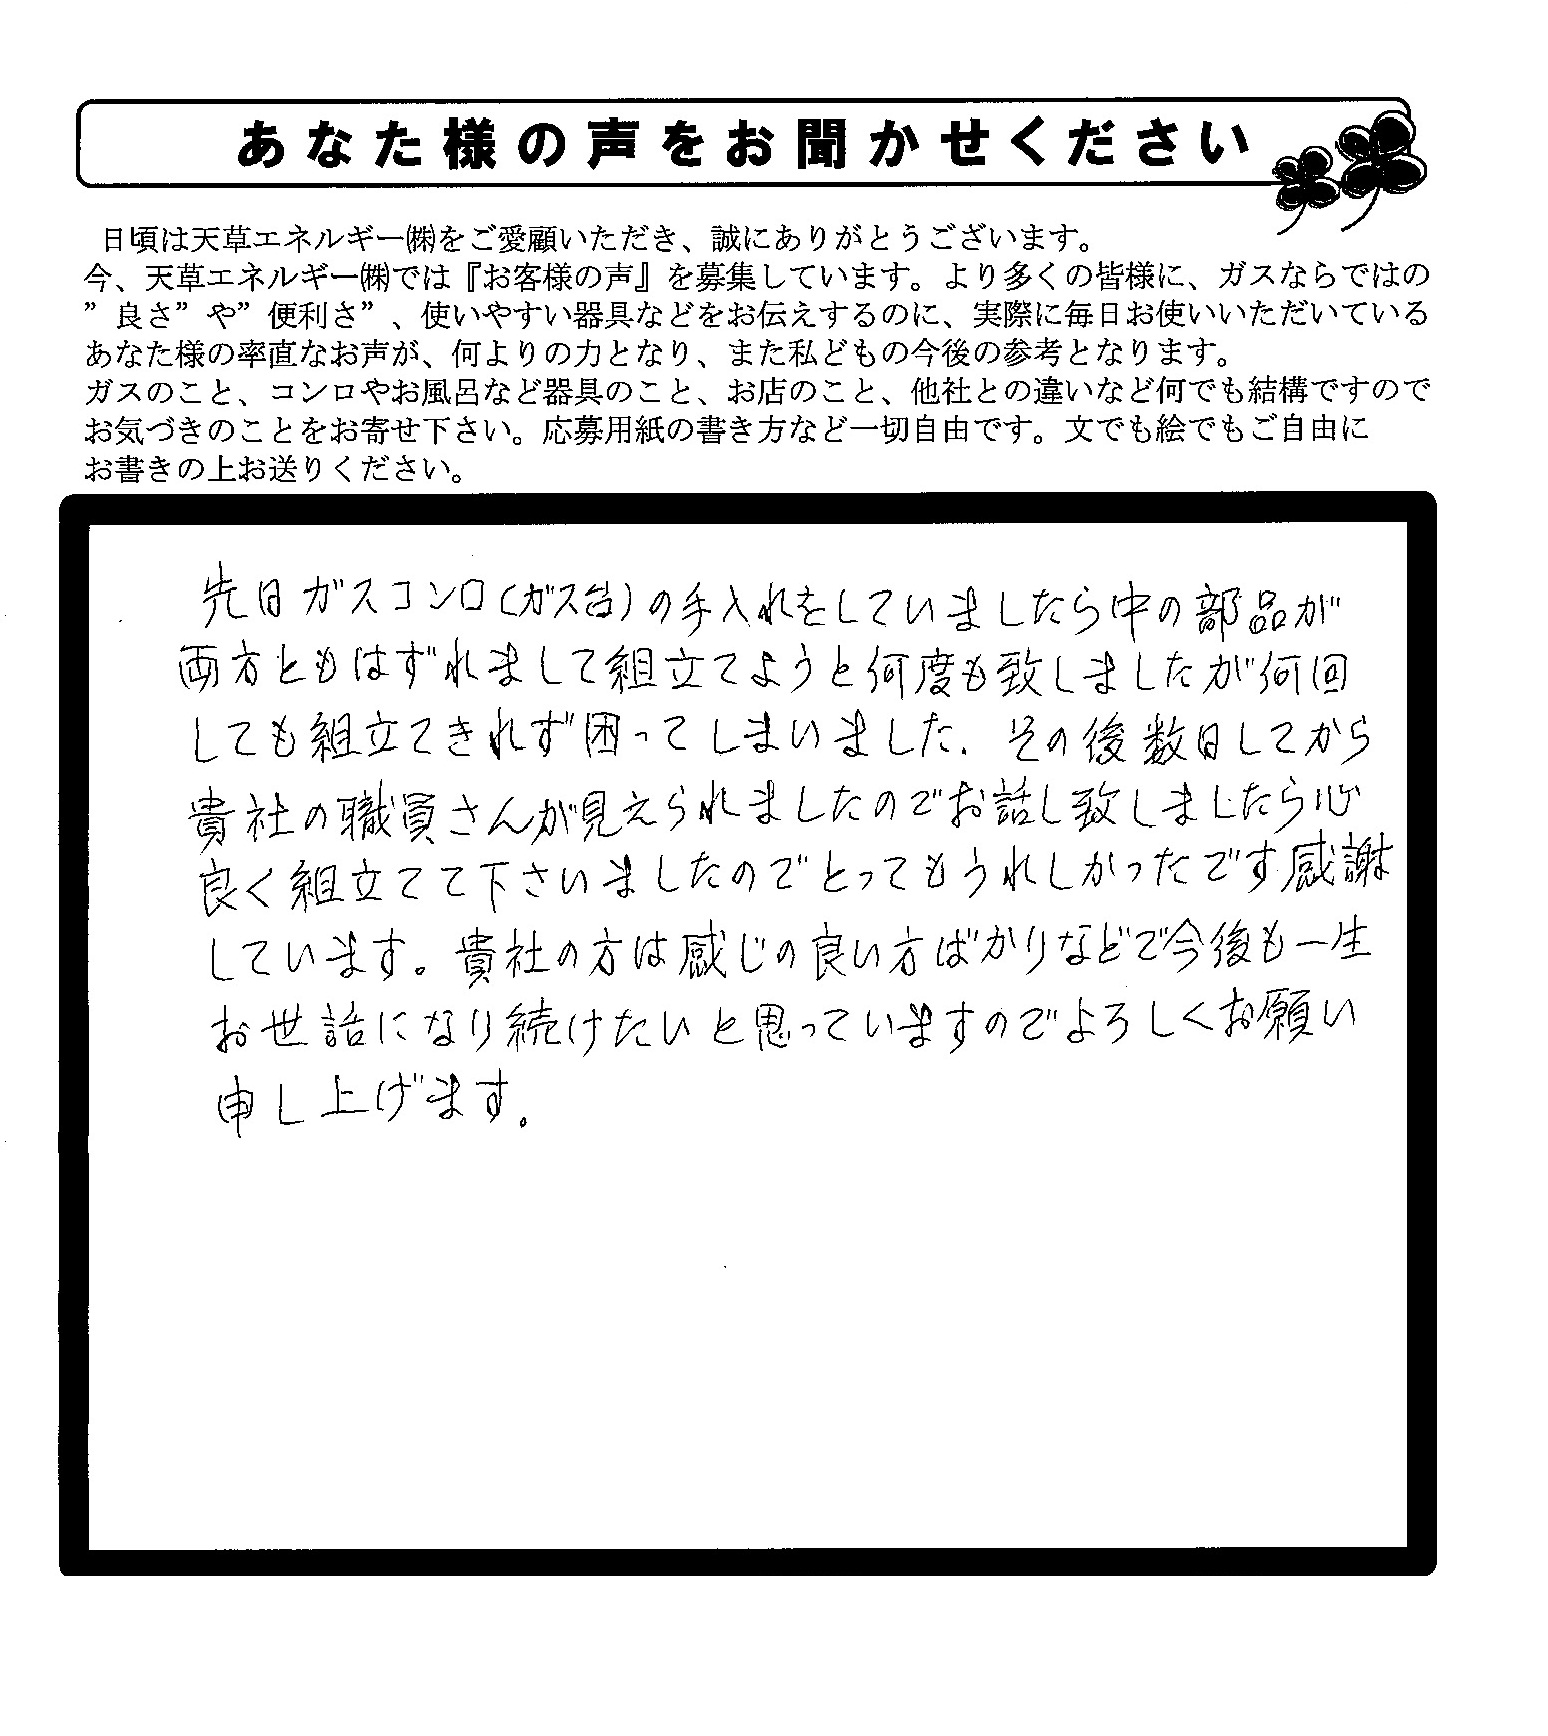 あなた様の声をお聞かせください
日頃は天草エネルギー㈱をご愛顧いただき、誠にありがとうございます。
今、天草エネルギー㈱では『お客様の声』を募集しています。より多くの皆様に、ガスならではの
”良さ”や”便利さ”、使いやすい器具などをお伝えするのに、実際に毎日お使いいただいている
あなた様の率直なお声が、何よりの力となり、また私どもの今後の参考となります。
ガスのこと、コンロやお風呂など器具のこと、お店のこと、他社との違いなど何でも結構ですので
お気づきのことをお寄せ下さい。応募用紙の書き方など一切自由です。文でも絵でもご自由に
お書きの上お送りください。
先日ガスコンロ(ガス台)の手入れをしていましたら中の部品が
両方ともはずれまして組立てようと何度も致しましたが何回
しても組立てきれず困ってしまいました。その後数日してから
貴社の職員さんが見えられましたのでお話し致しましたら心
良く組立てて下さいましたのでとってもうれしかったです感謝
しています。貴社の方は感じの良い方ばかりなどで今後も一生
お世話になり続けたいと思っていますのでよろしくお願い
申し上げます。